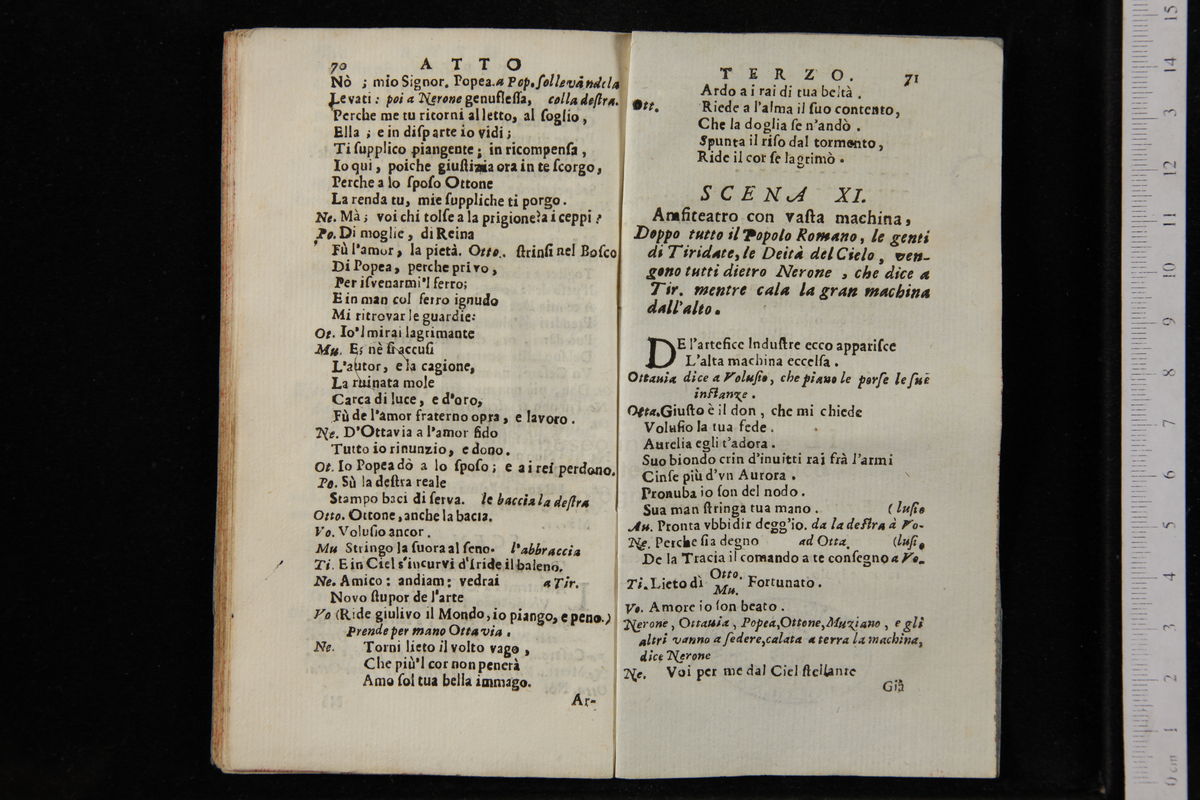 70 ATTO
Nò ; mio Signor. Popea. a Pop. ſollevãndcla
Levati : poi a Nerone genufleſſa, colla deſtra.
Perche me tu ritorni al letto, al ſoglio,
Ella ; e in diſparte io vidi ;
Ti ſupplico piangente ; in ricompenſa,
Io quì, poiche giuſtizia ora in te ſcorgo,
Perche a lo ſpoſo Ottone
La renda tu, mie ſuppliche ti porgo.
Ne. Mà ; voi chi tolſe a la prigione? a i ceppi ?
Po. Di moglie, di Reina
Fù l'amor, la pietà. Otto. ſtrinſi nel Boſco
Di Popea, perche privo,
Per iſvenarmi'l ferro;
E in man col ferro ignudo
Mi ritrovar le guardie:
Ot. Io'l mirai lagrimante
Mu. E; nè ſi accuſi
L'autor, e la cagione,
La ruinata mole
Carca di luce, e d'oro,
Fù de l'amor fraterno opra, e lavoro.
Ne. D'Ottavia a l'amor fido
Tutto io rinunzio, e dono.
Ot. Io Popea dò a lo ſpoſo ; e a i rei perdono.
Po. Sù la deſtra reale
Stampo baci di ſerva. le baccia la deſtra
Otto. Ottone, anche la bacia.
Vo. Voluſio ancor.
Mu Stringo la ſuora al ſeno. l'abbraccia
Ti. E in Ciel s'incurvi d'Iride il baleno.
Ne. Amico : andiam : vedrai a Tir.
Novo ſtupor de l'arte
Vo (Ride giulivo il Mondo, io piango, e peno.)
Prende per mano Ottavia.
Ne. Torni lieto il volto vago,
Che più'l cor non penerà
Amo ſol tua bella immago.
Ar-
TERZO. 71
Ardo a i rai di tua beltà.
Ott. Riede a l'alma il ſuo contento,
Che la doglia ſe n'andò.
Spunta il riſo dal tormento,
Ride il cor ſe lagrimò.
SCENA XI.
Amfiteatro con vaſta machina,
Doppo tutto il Popolo Romano, le genti
di Tiridate, le Deità del Cielo, ven-
gono tutti dietro Nerone, che dice a
Tir. mentre cala la gran machina
dall'alto.
DE l'artefice Induſtre ecco appariſce
L'alta machina eccelſa.
Ottavia dice a Voluſio, che piano le porſe le ſuè
inſtanze.
Otta. Giuſto è il don, che mi chiede
Voluſio la tua fede.
Aurelia egli t'adora.
Suo biondo crin d'inuitti rai frà l'armi
Cinſe più d'vn Aurora.
Pronuba io ſon del nodo.
Sua man ſtringa tua mano. (luſio
Au. Pronta vbbidir degg'io. da la deſtra à Vo-
Ne. Perche ſia degno ad Otta. (luſio
De la Tracia il comando a te conſegno a Vo-
Ti. Lieto dì Otto. Mu. Fortunato.
Vo. Amore io ſon beato.
Nerone, Ottavia, Popea, Ottone, Muziano, e gli
altri vanno a ſedere, calata a terra la machina,
dice Nerone
Ne. Voi per me dal Ciel ſtellante
Già